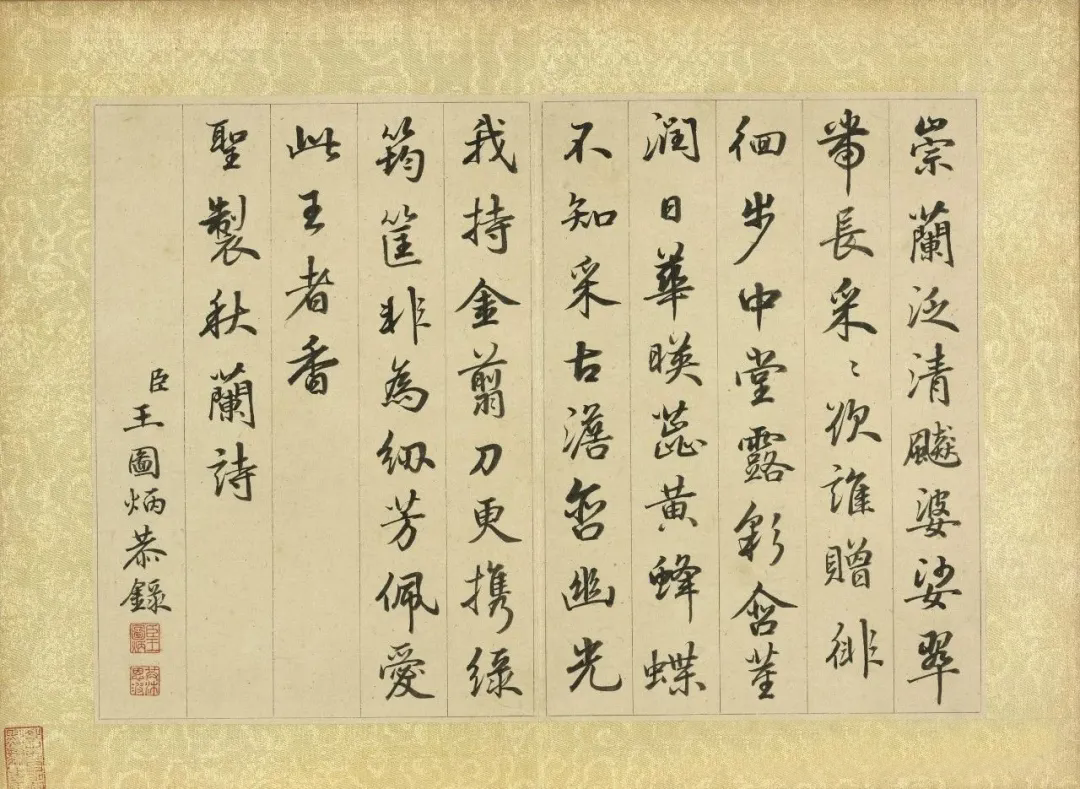 崇蘭泛清飈婆娑翠
帶長采〻欲誰贈徘
徊步中堂露彩含莖
潤日華暎蕊黄蜂蝶
不知采古澹含幽光
我持金翦刀更携綠
筠筐非為紉芳佩愛
此王者香
聖製秋蘭詩
臣王圖炳恭錄
臣王圖炳